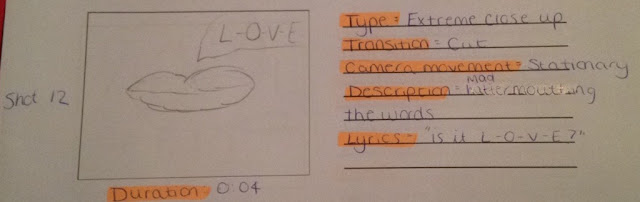 Shot 12
L-O-V-E
Duration: 0:04
Type = Extreme close up
Transition = Cut
Camera movement = Stationary
Mad
Description = Hatter mouthing
the words
Lyrics = "is it L-O-V-E?"